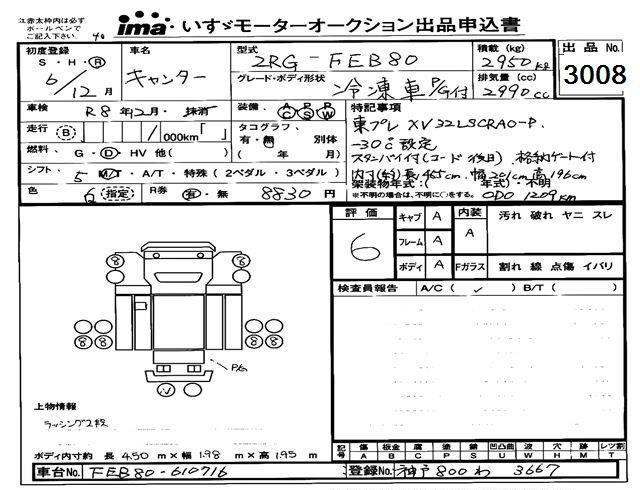 江赤太枠内は必ず
ボールペンで
ご記入下さい。
ima いすゞモーターオークション出品申込書
初度登録 車名 型式 積載 (kg) 出品 No.
S・H・R 6/12月 キャンター 2RG-FEB80 2950 kg 3008
グレード・ボディ形状 冷凍車P/G付 排気量 (cc) 2990 cc
車検 R8年12月・抹消 装備 A C P S P W 特記事項
東プレ XV32LSCRA0-P.
走行 (B) /000km「 」 タコグラフ 有・無 別体 ( 年 月)
-30℃設定
燃料 G・D・HV 他( )
スタンバイ付(コード後日) 格納ゲート付
シフト 5 M/T・A/T・特殊 (2ペダル・3ペダル)
内寸(約)長465cm.幅201cm高196cm
架装物年式:( 年式)・不明
※不明の場合は、不明に○をする。 ODO 1209km
色 白 (指定) R券 有・無 8830円
評価 6
キャブ A 内装 A 汚れ 破れ ヤニ スレ
フレーム A
ボディ A Fガラス 割れ 線 点傷 イバリ
検査員報告 A/C( ✓ ) B/T( )
8 8
8 8 8 8
P/G
上物情報
ラッシング2段
ボディ内寸約 長 4.50 m×幅 1.98 m×高 1.95 m
記号 傷 板金 腐 塗 錆 凹凸曲 波 穴 無 レツ割
A B C P S U W H M T
車台No. FEB80-610716 登録No. 神戸 800 わ 3667